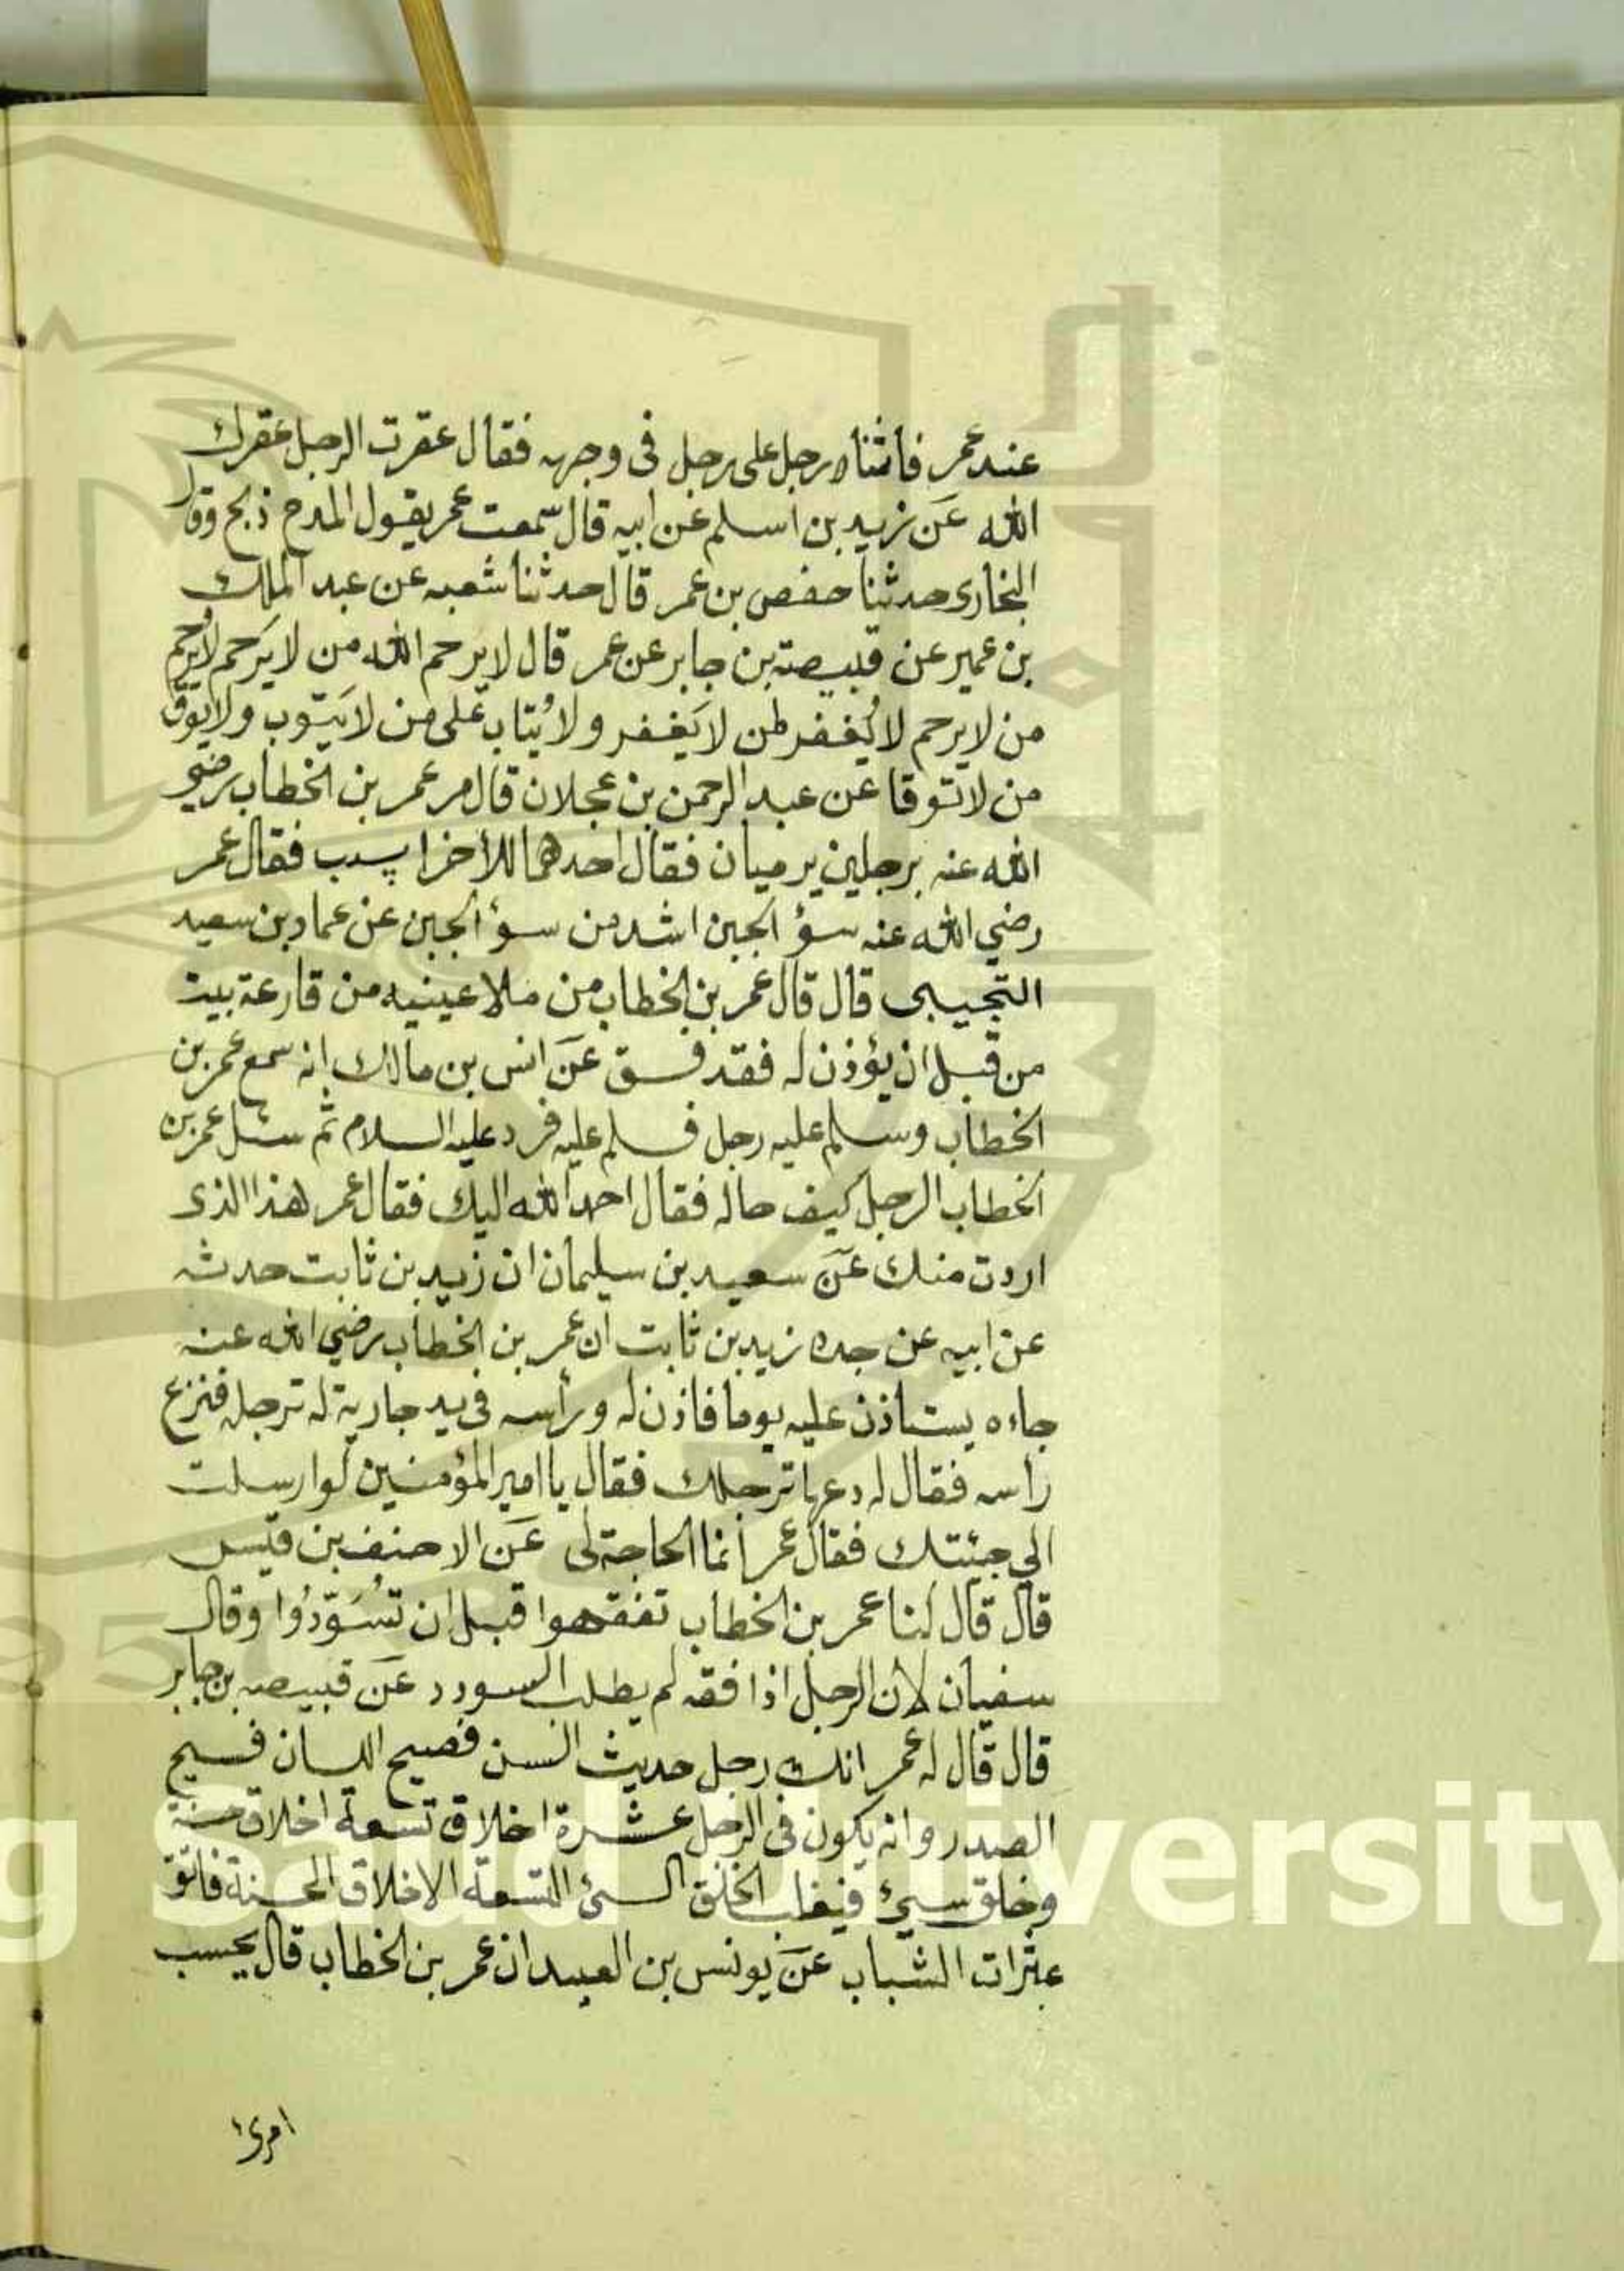 عند عمر فاثناه رجل على رجل في وجهه فقال عقرت الرجل عقرك
الله عن زيد بن اسلم عن ابيه قال سمعت عمر يقول المدح ذبح وقال
البخاري حدثنا حفص بن عمر قال حدثنا شعبه عن عبد الملك
بن عمير عن قبيصة بن جابر عن عمر قال لا يرحم الله من لا يَرحم لا يُرحم
من لا يرحم لا يُغفر لمن لا يَغفر ولا يُتاب على من لا يَتوب ولا يوق
من لا توقا عن عبد الرحمن بن عجلان قال مر عمر بن الخطاب رضي
الله عنه برجلين يرميان فقال احدهما للأخر اسبب فقال عمر
رضي الله عنه سؤ الجبن اشد من سؤ الجبن عن عماد بن سعيد
التجيبى قال قال عمر بن الخطاب من ملا عينيه من قارعة بيت
من قبل ان يؤذن له فقد فسق عَن انس بن مالك انه سمع عمر بن
الخطاب وسلم عليه رجل فسلم عليه فرد عليه السلام ثم سئل عمر بن
الخطاب الرجل كيف حاله فقال احمد الله اليك فقال عمر هذا الذى
اردت منك عَن سعيد بن سليمان ان زيد بن ثابت حدثه
عن ابيه عن جده زيد بن ثابت ان عمر بن الخطاب رضي الله عنه
جاءه يستاذن عليه يوما فاذن له ورأسه في يد جارية له ترجله فنزع
راسه فقال له دعها ترجلك فقال يا امير المؤمنين لو ارسلت
الي جيئتك فقال عمر انما الحاجة لى عَن الاحنف بن قيس
قال قال لنا عمر بن الخطاب تفقهوا قبل ان تُسَوّدُوا وقال
سفيان لان الرجل اذا فقه لم يطلب السودد عَن قبيصه بن جابر
قال قال له عمر انك رجل حديث السن فصيح اللسان فسيح
الصدر وانه يكون فى الرجل عشرة اخلاق تسعة اخلاق حسنة
وخلق سيئ فيغلب الخلق السئ التسعة الاخلاق الحسنة فاتق
عثرات الشباب عَن يونس بن العبيد ان عمر بن الخطاب قال يحسب
امرئ
g Saud University